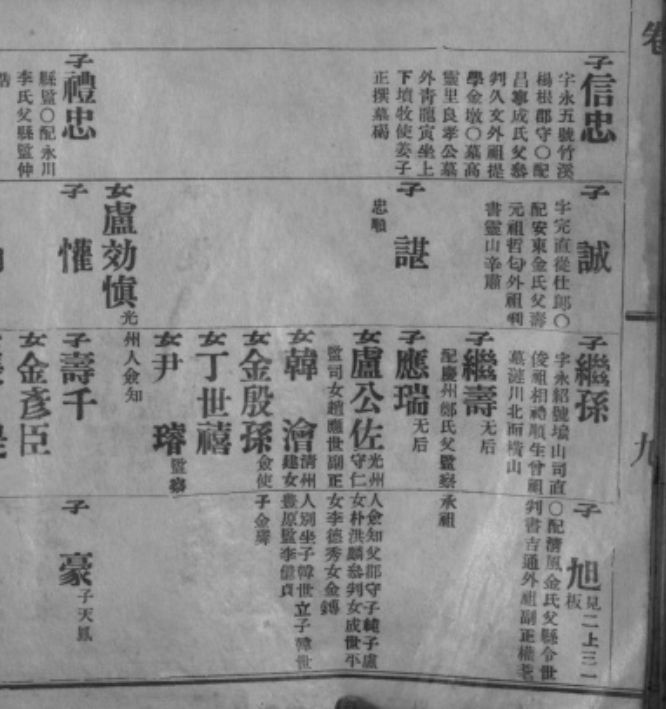 卷
九
子 信忠
字永五號竹溪
楊根郡守○配
昌寧成氏父叅
判久文外祖提
學金墩○墓高
靈里良孝公墓
外靑龍寅坐上
下墳牧使姜子
正撰墓碣
子 禮忠
縣監○配永川
李氏父縣監仲
子 誠
字完直從仕郎○
配安東金氏父壽
元祖哲匀外祖判
書靈山辛肅
子 諶
忠順
女 盧効愼
光州人僉知
子 懽
子 繼孫
字永紹號墳山司直○配淸風金氏父縣令世
俊祖相禮順生曾祖判書吉通外祖副正權耄
墓漣川北面橫山
子 繼壽
无后
配慶州鄭氏父監察承祖
子 應瑞
无后
女 盧公佐
光州人僉知父郡守子績子盧
守仁女朴洪麟叅判女成世平
監司女趙應世副正女李德秀女金鏄
女 韓澮
淸州人別坐子韓世立子韓世
建女豊原監李億貞
女 金殷孫
僉使子金霽
女 丁世禧
女 尹璿
監察
子 壽千
女 金彥臣
子 旭
見二上三一
板
子 豪
子天鳳